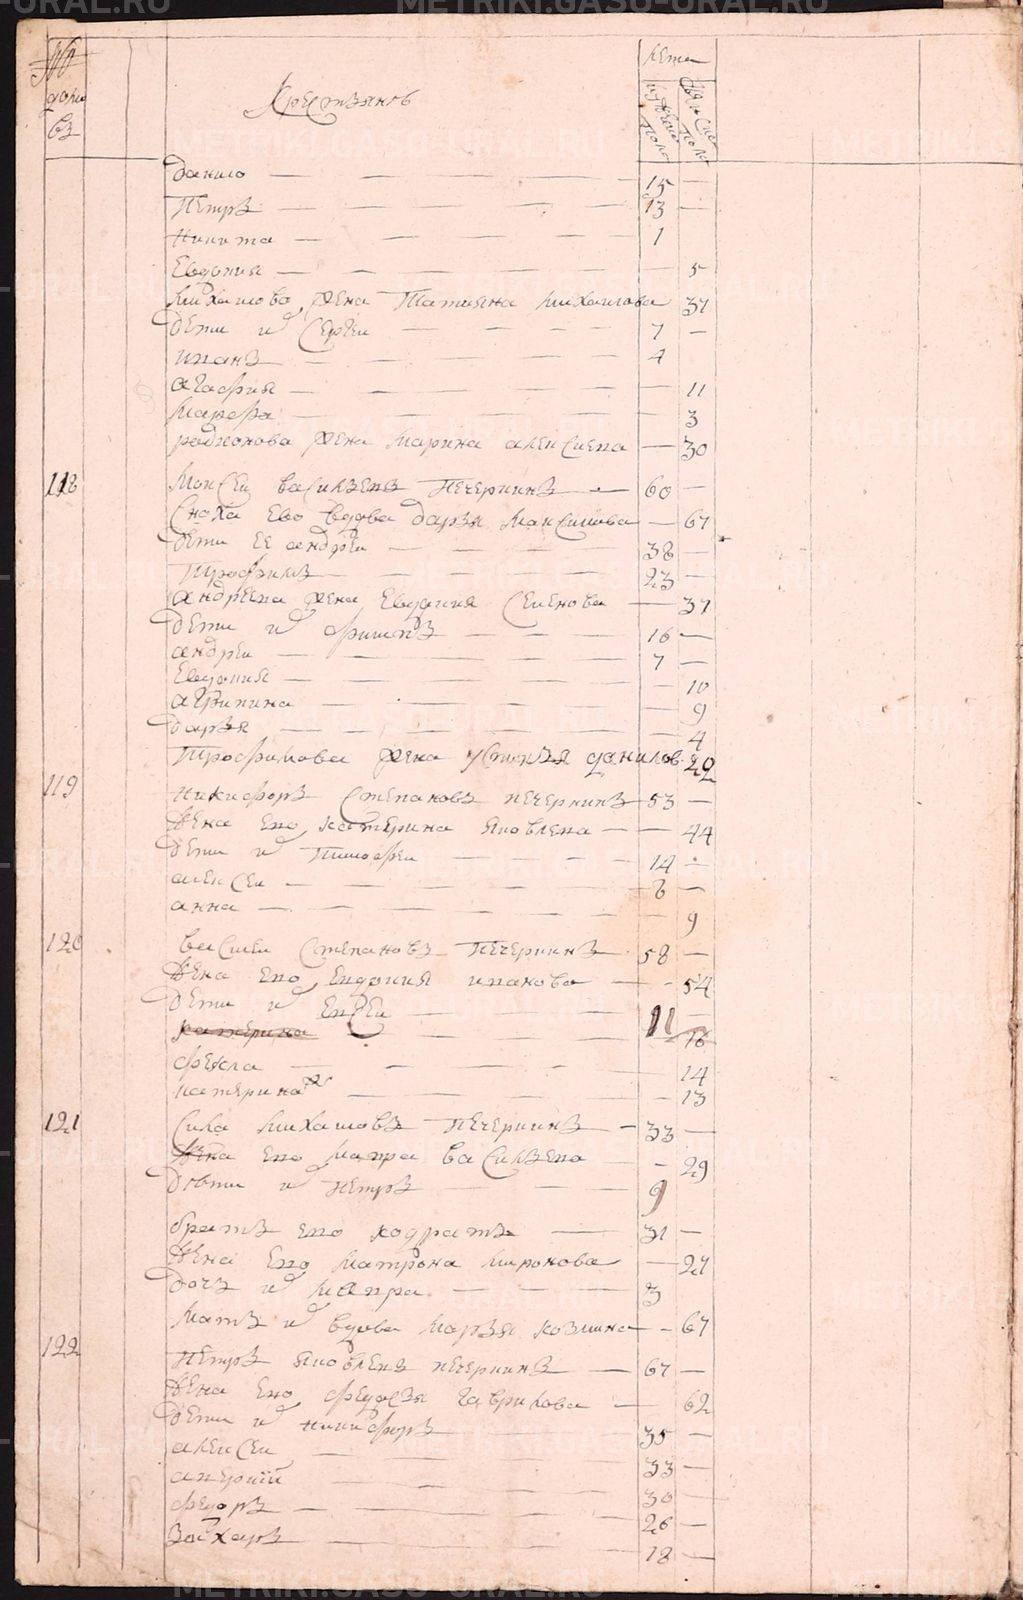 METRIKI.GASU-URAL.RU
№
домовъ
Крестьяновъ
Лета
мужеска пола
женска пола
Данило — 15 —
Петръ — 13 —
Никита — 1
Евдокия — 5
Михаилова жена Татияна Михаилова 37
дети их Сергеи — 7 —
Иванъ — 4
Агафия — 11
Марфа — 3
Родионова жена Марина Алексиева — 30
118 Моисеи Васильевъ Печеркинъ — 60 —
Сноха ево вдова Дарья Максимова — 67
дети ее Андреи — 38 —
Трофимъ — 23 —
Андреева жена Евдокия Семенова — 37
дети их Филипъ — 16 —
Андреи — 7 —
Евдокия — 10
Агрипина — 9
Дарья — 4
Трофимова жена Устинья Данилов. 22
119 Никифоръ Степановъ Печеркинъ 53 —
Жена ево Катерина Яковлева — 44
дети их Тимофеи — 14 —
Алексеи — 8 —
Анна — 9
120 Василеи Степановъ Печеркинъ 58 —
Жена ево Евдокия Иванова — 54
дети их Евсеи — 11 —
Катерина — 18
Фекла — 14
Катерина ж — 13
121 Сила Михаиловъ Печеркинъ — 33 —
Жена ево Мавра Васильева — 29
дети их Петръ — 9
братъ ево Кодратъ — 31 —
Жена ево Матрона Миронова — 27
дочь их Мавра — 3
Мать их вдова Марья Козмина — 67
122 Петръ Яковлевъ Печеркинъ — 67 —
Жена ево Федосья Гаврилова — 62
дети их Никифоръ — 35 —
Алексеи — 33 —
Федоръ — 26 —
Захаръ — 18 —
METRIKI.GASU-URAL.RU